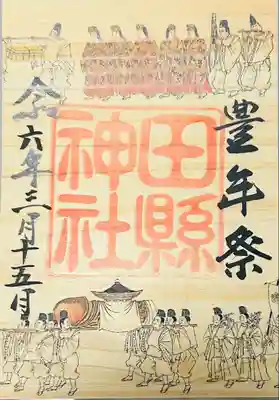 豊年祭
田縣神社
令六年三月十五日